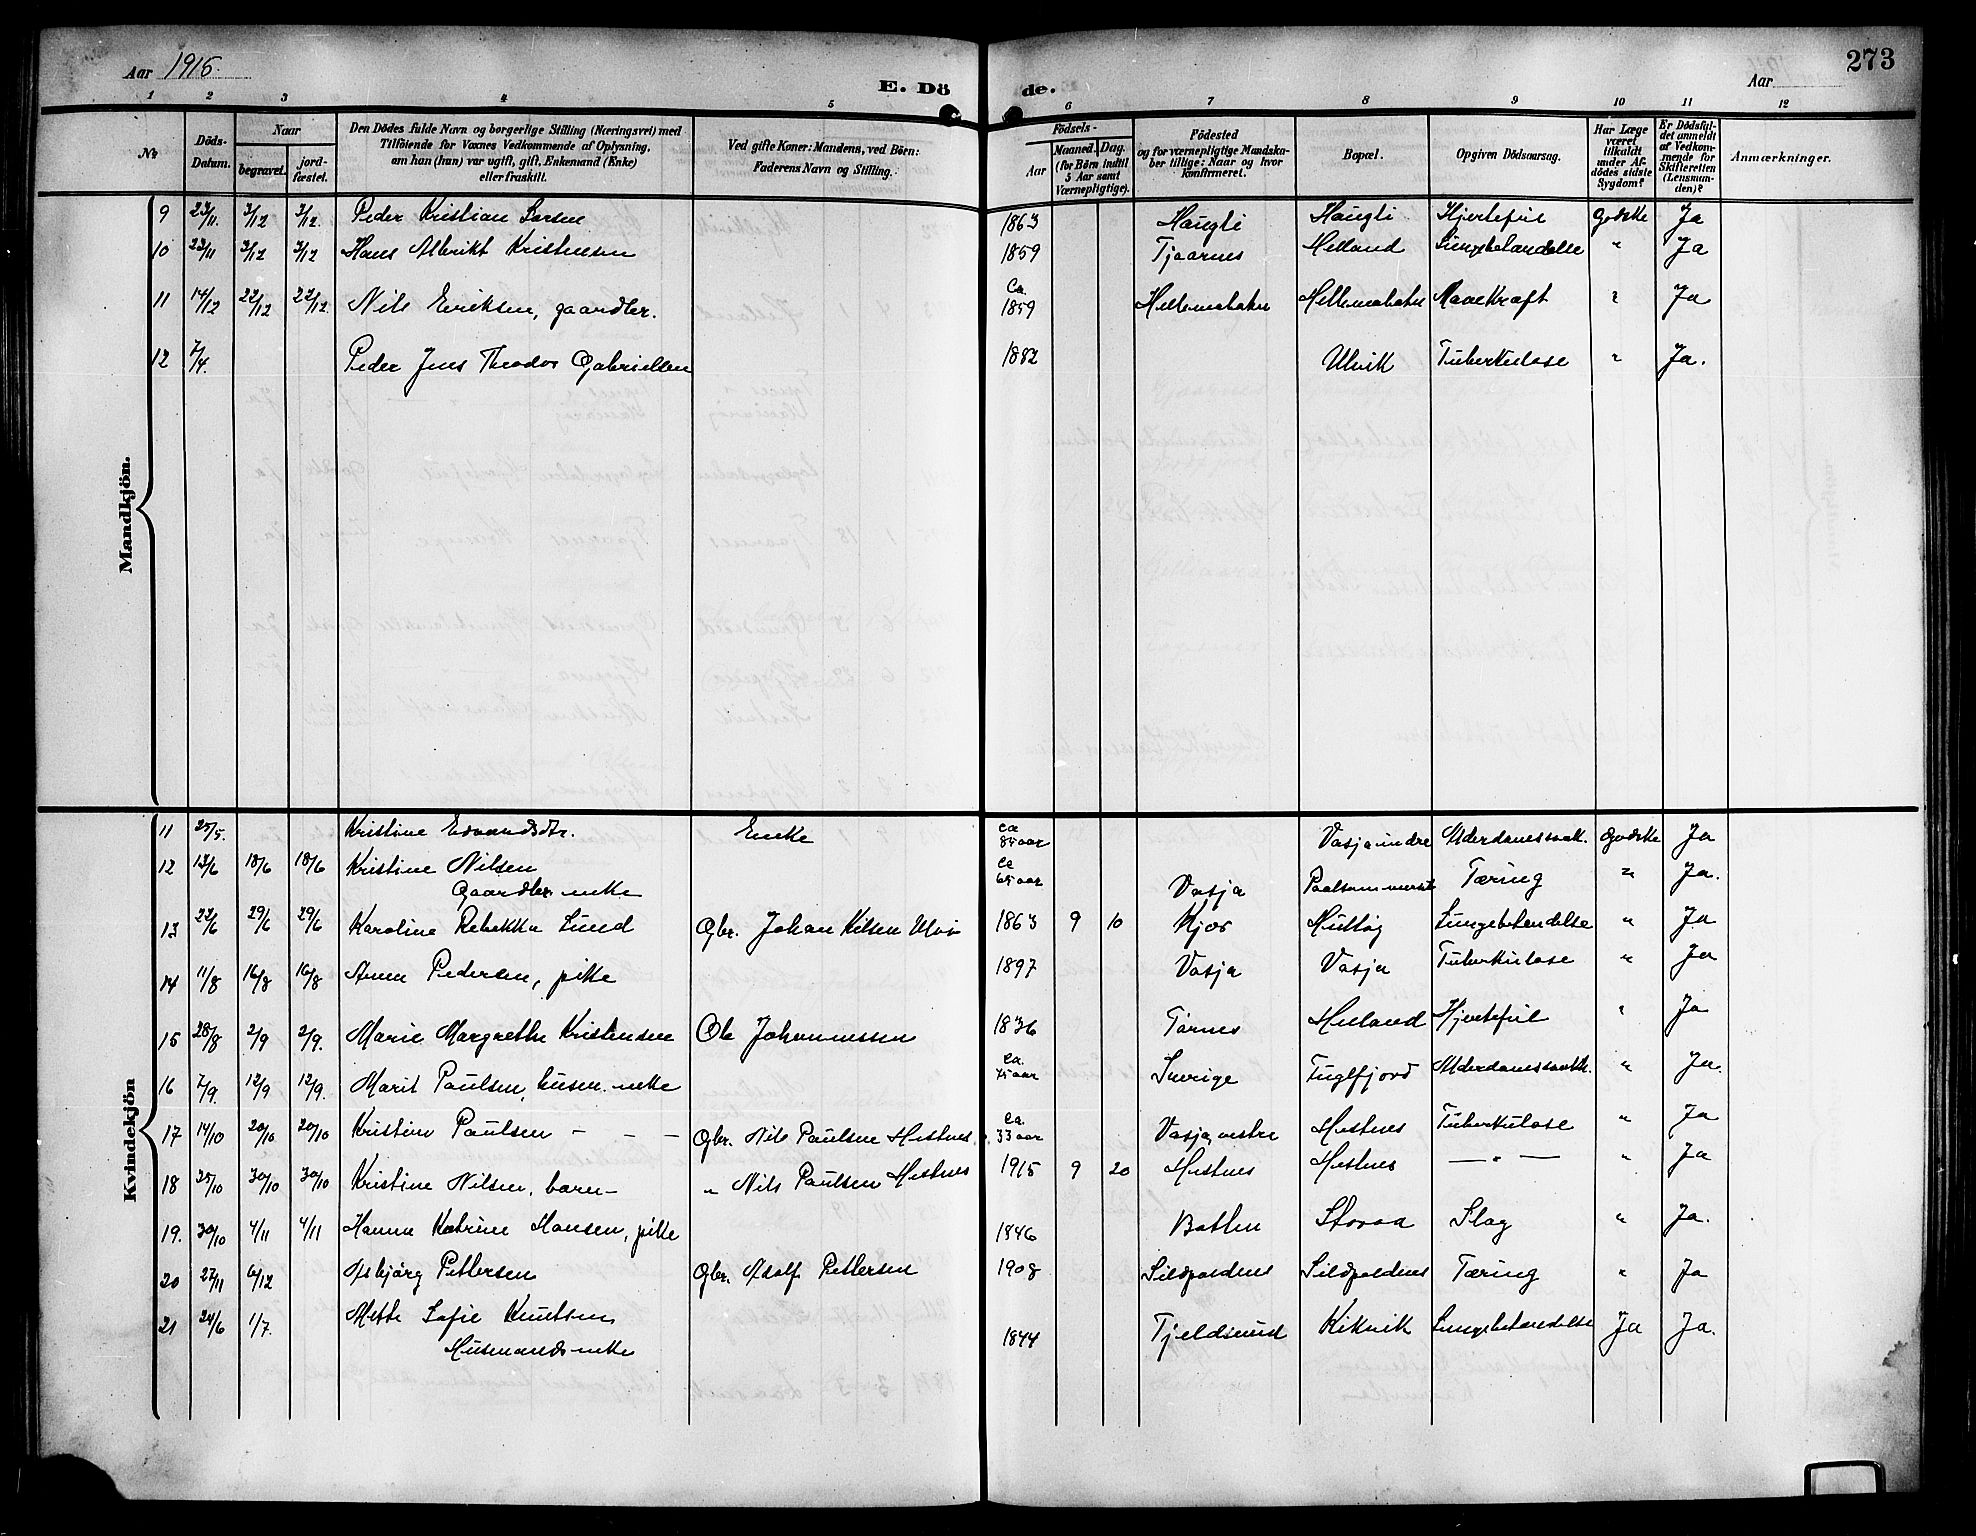 Aar 1916.
E. Dö de.
Aar
273
1 2 3 4 5 6 7 8 9 10 11 12
No
Döds-Datum.
Naar
begravet.
jord-fæstet.
Den Dödes fulde Navn og borgerlige Stilling (Næringsvei) med
Tilföiende for Voxnes Vedkommende af Oplysning,
om han (hun) var ugift, gift, Enkemand (Enke)
eller fraskilt.
Ved gifte Koner: Mandens, ved Börn:
Faderens Navn og Stilling.
Födsels-
Aar
Maaned. Dag.
(for Börn indtil
5 Aar samt
Værnepligtige).
Födested
og for værnepligtige Mandska-
ber tillige: Naar og hvor
konfirmeret.
Bopæl.
Opgiven Dödsaarsag.
Har Læge
været
tilkaldt
under Af-
dödes sidste
Sygdom?
Er Dödsfal-
det anmeldt
af Vedkom-
mende for
Skifteretten
(Lensman-
den)?
Anmærkninger.
Mandkjön.
9 23/11 3/12 3/12 Peder Kristian Larsen 1863 Haugli Haugli Hjertefeil Godske Ja
10 23/11 3/12 3/12 Hans Albrikt Kristensen 1859 Tjaarnes Helland Lungebetændelse " Ja
11 14/12 22/12 22/12 Nils Eriksen, gaardbr. Ca. 1859 Hellemobotn Hellemobotn Mavekræft " Ja
12 7/4. Peder Jens Theodor Gabrielsen 1882 Ulvik Tuberkulose " Ja.
Kvindekjön
11 25/5. Kristine Edvardsdtr. Enke ca 85 aar Vasja indre Alderdomssvakh. Godske Ja
12 13/6 18/6 18/6 Kristine Nilsen
Gaardbr. enke ca 65 aar Vasja Tæring " Ja.
13 22/6 29/6 29/6 Karoline Rebekka Lund Gbr. Johan Nilsen 1863 9 10 Kjær Lungebetændelse " Ja
14 11/8 16/8 16/8 Anna Pedersen, pike 1897 Vasja Vasja Tuberkulose " Ja
15 28/8 2/9 2/9. Marie Margrethe Kristensen Ole Johannessen 1836 Tørnes Helland Hjertefeil " Ja
16 7/9. 12/9 12/9. Marit Paulsen, husm. enke ca. 75 aar Sverige Fuglfjord Alderdomssvakh. " Ja.
17 14/10 20/10 20/10 Kristine Paulsen - - - Gbr. Nils Paulsen Hestnes. ca. 33 aar Vasja, vestre Hestnes Tuberkulose " Ja
18 25/10 30/10 30/10 Kristine Nilsen, barn - " Nils Paulsen Hestnes 1915 9 20 Hestnes Hestnes - " - " Ja
19. 30/10 4/11 4/11 Hanna Katrine Hansen, pike 1846 Botten Storaa Slag " Ja.
20 27/11 6/12 Asbjørg Pettersen Gbr. Adolf Pettersen 1908 Sildpoldnes Sildpoldnes Tæring " Ja
21 24/6 1/7. Mette Sofie Knutsen
Husmandsenke 1844 Tjeldsund Kikvik Lungebetændelse Ja Ja.